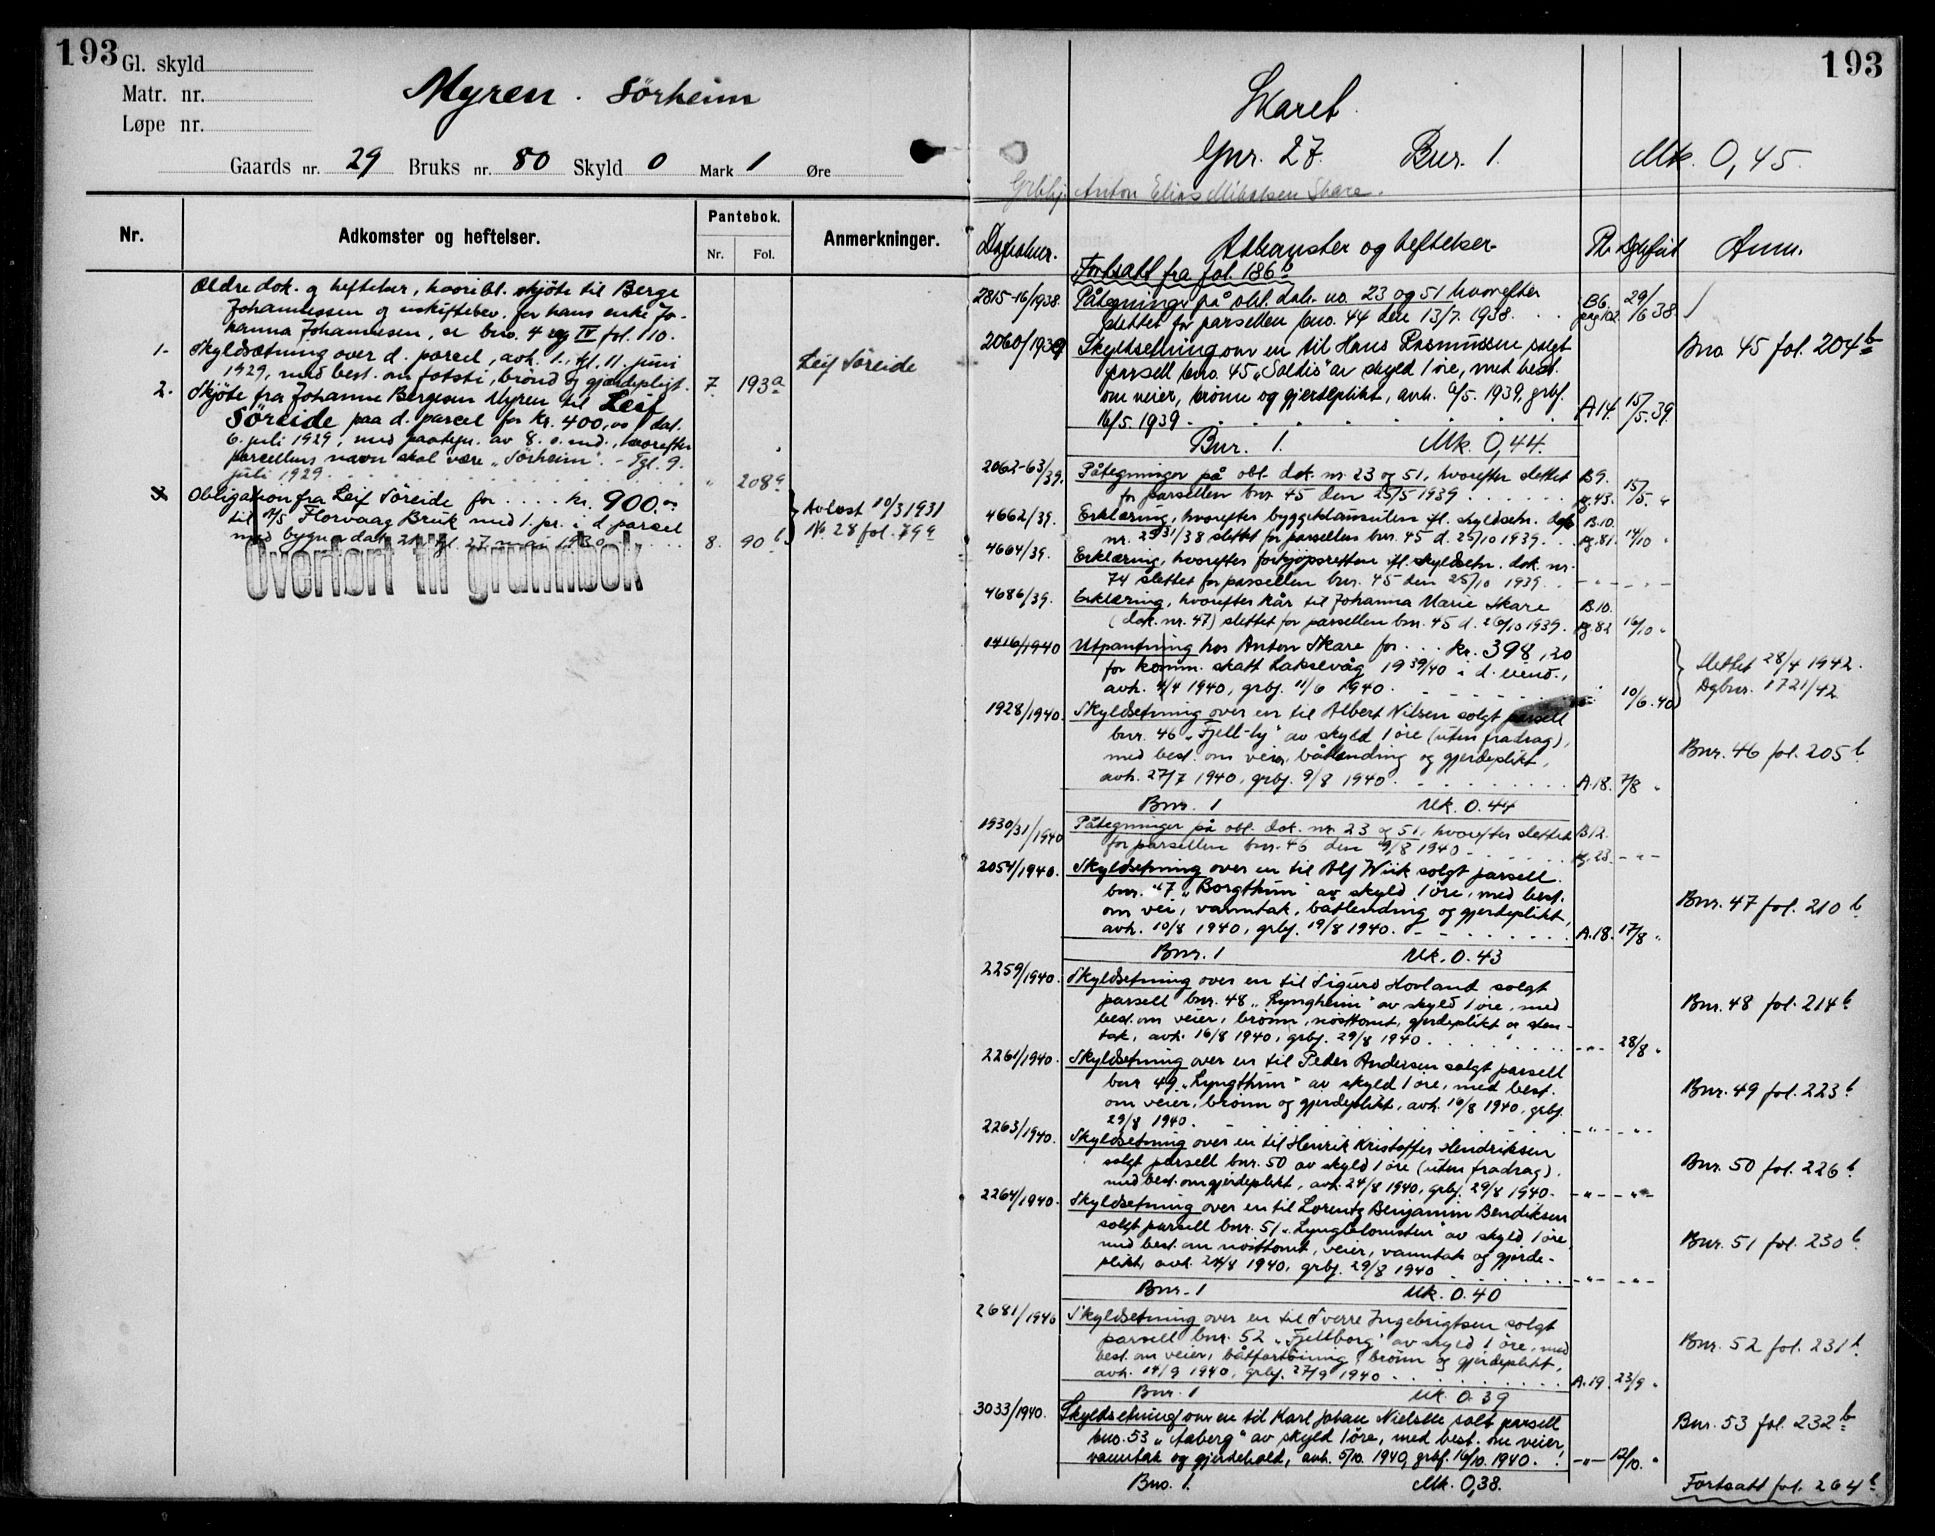 193
Gl. skyld
Matr. nr.
Løpe nr.
Myren. Sörheim
Gaards nr. 29 Bruks nr. 80 Skyld 0 Mark 1 Øre
Nr.
Adkomster og heftelser.
Pantebok.
Nr. Fol.
Anmerkninger.
Ældre dok. og heftelser, hvoribl. skjöte til Berge
Johannessen og uskiftebev. for hans enke Jo-
hanna Johannesen, se bno. 4 og IV fol. 110.
1. Skyldsætning over d. parcel, avh. 1., tgl. 11. juni
1929, med best. om fotsti, brönd og gjærdepligt. 7. 193a Leif Söreide
2. Skjöte fra Johanne Bergesen Myren til Leif
Söreide paa d. parcel for kr. 400,00 dat.
6. juli 1929, med paategn. av 8. s. md., hvorefter
parcellens navn skal være "Sörheim". - Tgl. 9.
juli 1929 " 208a
3 Obligation fra Leif Söreide for .... kr. 900.00
til A/S Florvaag Bruk med 1. pr. i d. parsel
med bygn. dat. 21. tgl. 27. mai 1930 8. 90b
Avlæst 10/3 1931
No. 28 fol. 79a
Overført til grunnbok
193
Skaret.
Gnr. 27. Bnr. 1. Mk. 0,45.
Grbhj. Anton Elias Mikalsen Skare.
Dagboknr. Atkomster og heftelser Pb. Dgbfört Anm.
Fortsatt fra fol. 186b
2815-16/1938. Påtegninger på obl. dok. no. 23 og 51 hvorefter
slettet for parsellen bno. 44 den 13/7. 1938. B6. pag 102. 29/6 38.
2060/1939 Skyldsetning over en til Hans Rasmussen solgt
parsell bno. 45 "Soldis" av skyld 1 öre, med best.
om veier, brönn og gjerdeplikt, avh. 6/5. 1939, grbf.
16/5. 1939 A14. 15/5. 39. Bno 45 fol. 204b
Bnr. 1. Mk. 0,44.
2062-63/39. Påtegninger på obl. dok. nr. 23 og 51, hvorefter slettet
for parsellen bnr. 45 den 25/5 1939 B9. pg. 43. 15/5. "
4662/39. Erklæring, hvorefter byggeklausulen ifl. skyldsetn. dgb.
nr. 2531/38 slettet for parsellen bnr. 45 d. 25/10 1939. B10. pg. 81. 14/10 "
4664/39. Erklæring, hvorefter forkjöpsretten ifl. skyldsetn. dok. nr.
74 slettet for parsellen bnr. 45 den 25/10 1939. - " - - " -
4686/39. Erklæring, hvorefter kår til Johanna Marie Skare
(dok. nr. 47) slettet for parsellen bnr. 45 d. 26/10 1939. B10. pg. 82 16/10 "
1416/1940 Utpantning hos Anton Skare for ... kr. 398,20
for komm. skatt Laksevåg 1939/40 i d. eiend.,
avh. 4/4 1940, grbf. 11/6 1940. 10/6. 40
Slettet 28/4 1942.
Dgbnr. 1721/42
1928/1940. Skyldsetning over en til Albert Nilsen solgt parsell
bnr. 46 "Fjell-ly" av skyld 1 öre (uten fradrag),
med best. om veier, båtlending og gjerdeplikt,
avh. 27/7 1940, grbf. 9/8 1940. A.18. 7/8 " Bnr. 46 fol. 205b
Bnr. 1 Mk. 0.44
1930/31/1940 Påtegninger på obl. dok. nr. 23 og 51, hvorefter slettet
for parsellen bnr. 46 den 9/8 1940 B12. pg. 23. - " -
2054/1940. Skyldsetning over en til Alf Wiik solgt parsell
bnr. 47 "Borgtheim" av skyld 1 öre, med best.
om vei, vanntak, båtlending og gjerdeplikt,
avh. 10/8 1940, grbf. 19/8 1940. A.18. 17/8 " Bnr. 47 fol. 210b
Bnr. 1 Mk. 0.43
2259/1940. Skyldsetning over en til Sigurd Hovland solgt
parsell bnr. 48 "Lyngheim" av skyld 1 öre, med
best. om veier, brönn, nösttomt, gjerdeplikt og sten-
tak, avh. 16/8 1940, grbf. 29/8 1940. - " - 28/8 " Bnr. 48 fol. 214b
2261/1940. Skyldsetning over en til Peder Andersen solgt parsell
bnr. 49 "Lyngtheim" av skyld 1 öre, med best.
om veier, brönn og gjerdeplikt, avh. 16/8 1940, grbf.
29/8 1940. - " - - " - Bnr. 49 fol. 223b
2263/1940. Skyldsetning over en til Henrik Kristoffer Hendriksen
solgt parsell bnr. 50 av skyld 1 öre (uten fradrag),
med best. om gjerdeplikt, avh. 24/8 1940, grbf. 29/8 1940. - " - - " - Bnr. 50 fol. 226b
2264/1940. Skyldsetning over en til Lorentz Benjamin Bendiksen
solgt parsell bnr. 51 "Lyngblomsten" av skyld 1 öre
med best. om nösttomt, veier, vanntak og gjerde-
plikt, avh. 24/8 1940, grbf. 29/8 1940 - " - - " - Bnr. 51 fol. 230b
Bnr. 1 Mk. 0.40
2681/1940 Skyldsetning over en til Sverre Ingebrigtsen solgt
parsell bnr. 52 "Fjellborg" av skyld 1 öre, med
best. om veier, båtfortöining, brönn og gjerdeplikt,
avh. 14/9 1940, grbf. 27/9 1940 A.19. 23/9 " Bnr. 52 fol. 231b
Bnr. 1 Mk. 0.39
3033/1940. Skyldsetning over en til Karl Johan Nielsen solt parsell
bno. 53 "Aaberg" av skyld 1 öre, med best. om veier,
vanntak og gjerdehold, avh. 5/10. 1940, grbf. 16/10. 1940. - " - 12/10. " Bnr. 53 fol. 232b
Bno. 1. Mk. 0,38.
Fortsatt fol. 264b